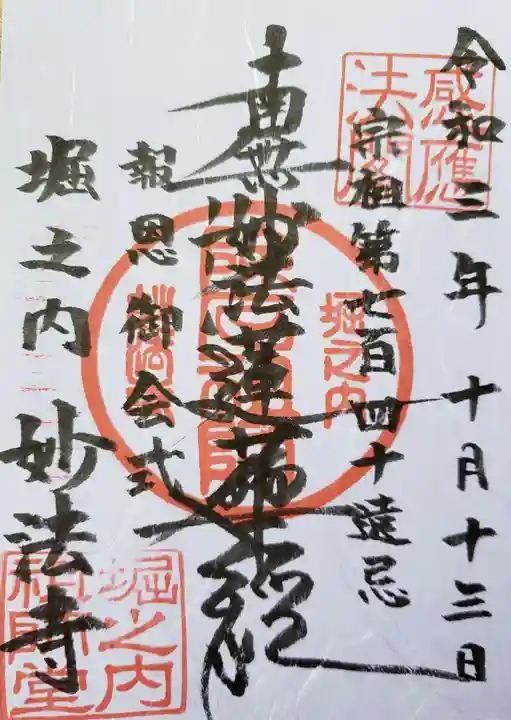 令和三年 十月十三日
宗祖第七百四十遠忌
南無妙法蓮華経
報恩 御会式
堀之内 妙法寺
感應
法閣
堀之内
堀之内
祖師堂